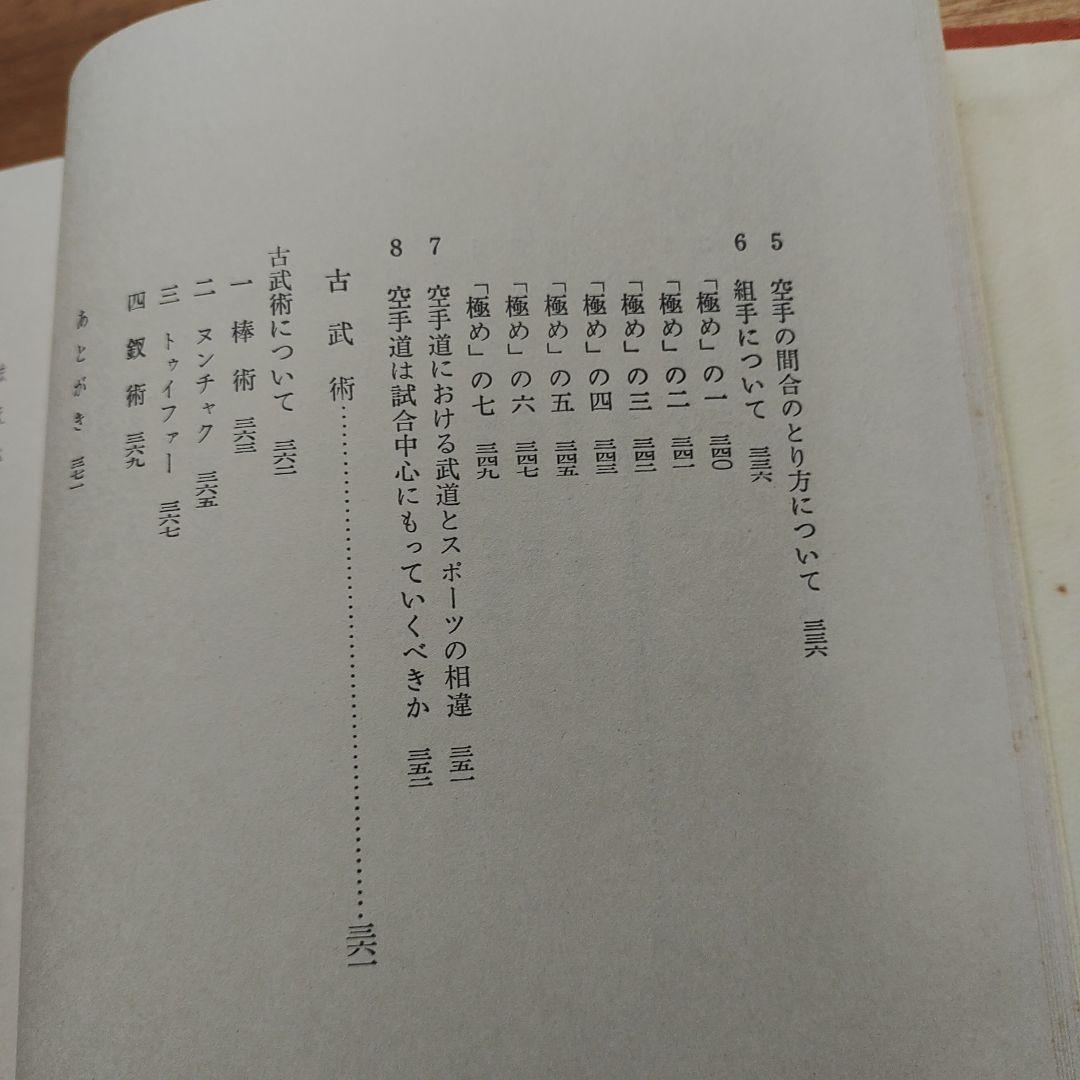 5 空手の間合のとり方について 三三六
6 組手について 三三六
「極め」の一 三四〇
「極め」の二 三四一
「極め」の三 三四二
「極め」の四 三四三
「極め」の五 三四五
「極め」の六 三四七
「極め」の七 三四九
7 空手道における武道とスポーツの相違 三五一
8 空手道は試合中心にもっていくべきか 三五二
古武術……………………三六一
古武術について 三六二
一 棒術 三六三
二 ヌンチャク 三六五
三 トゥイファー 三六七
四 釵術 三六九
あとがき 三七一